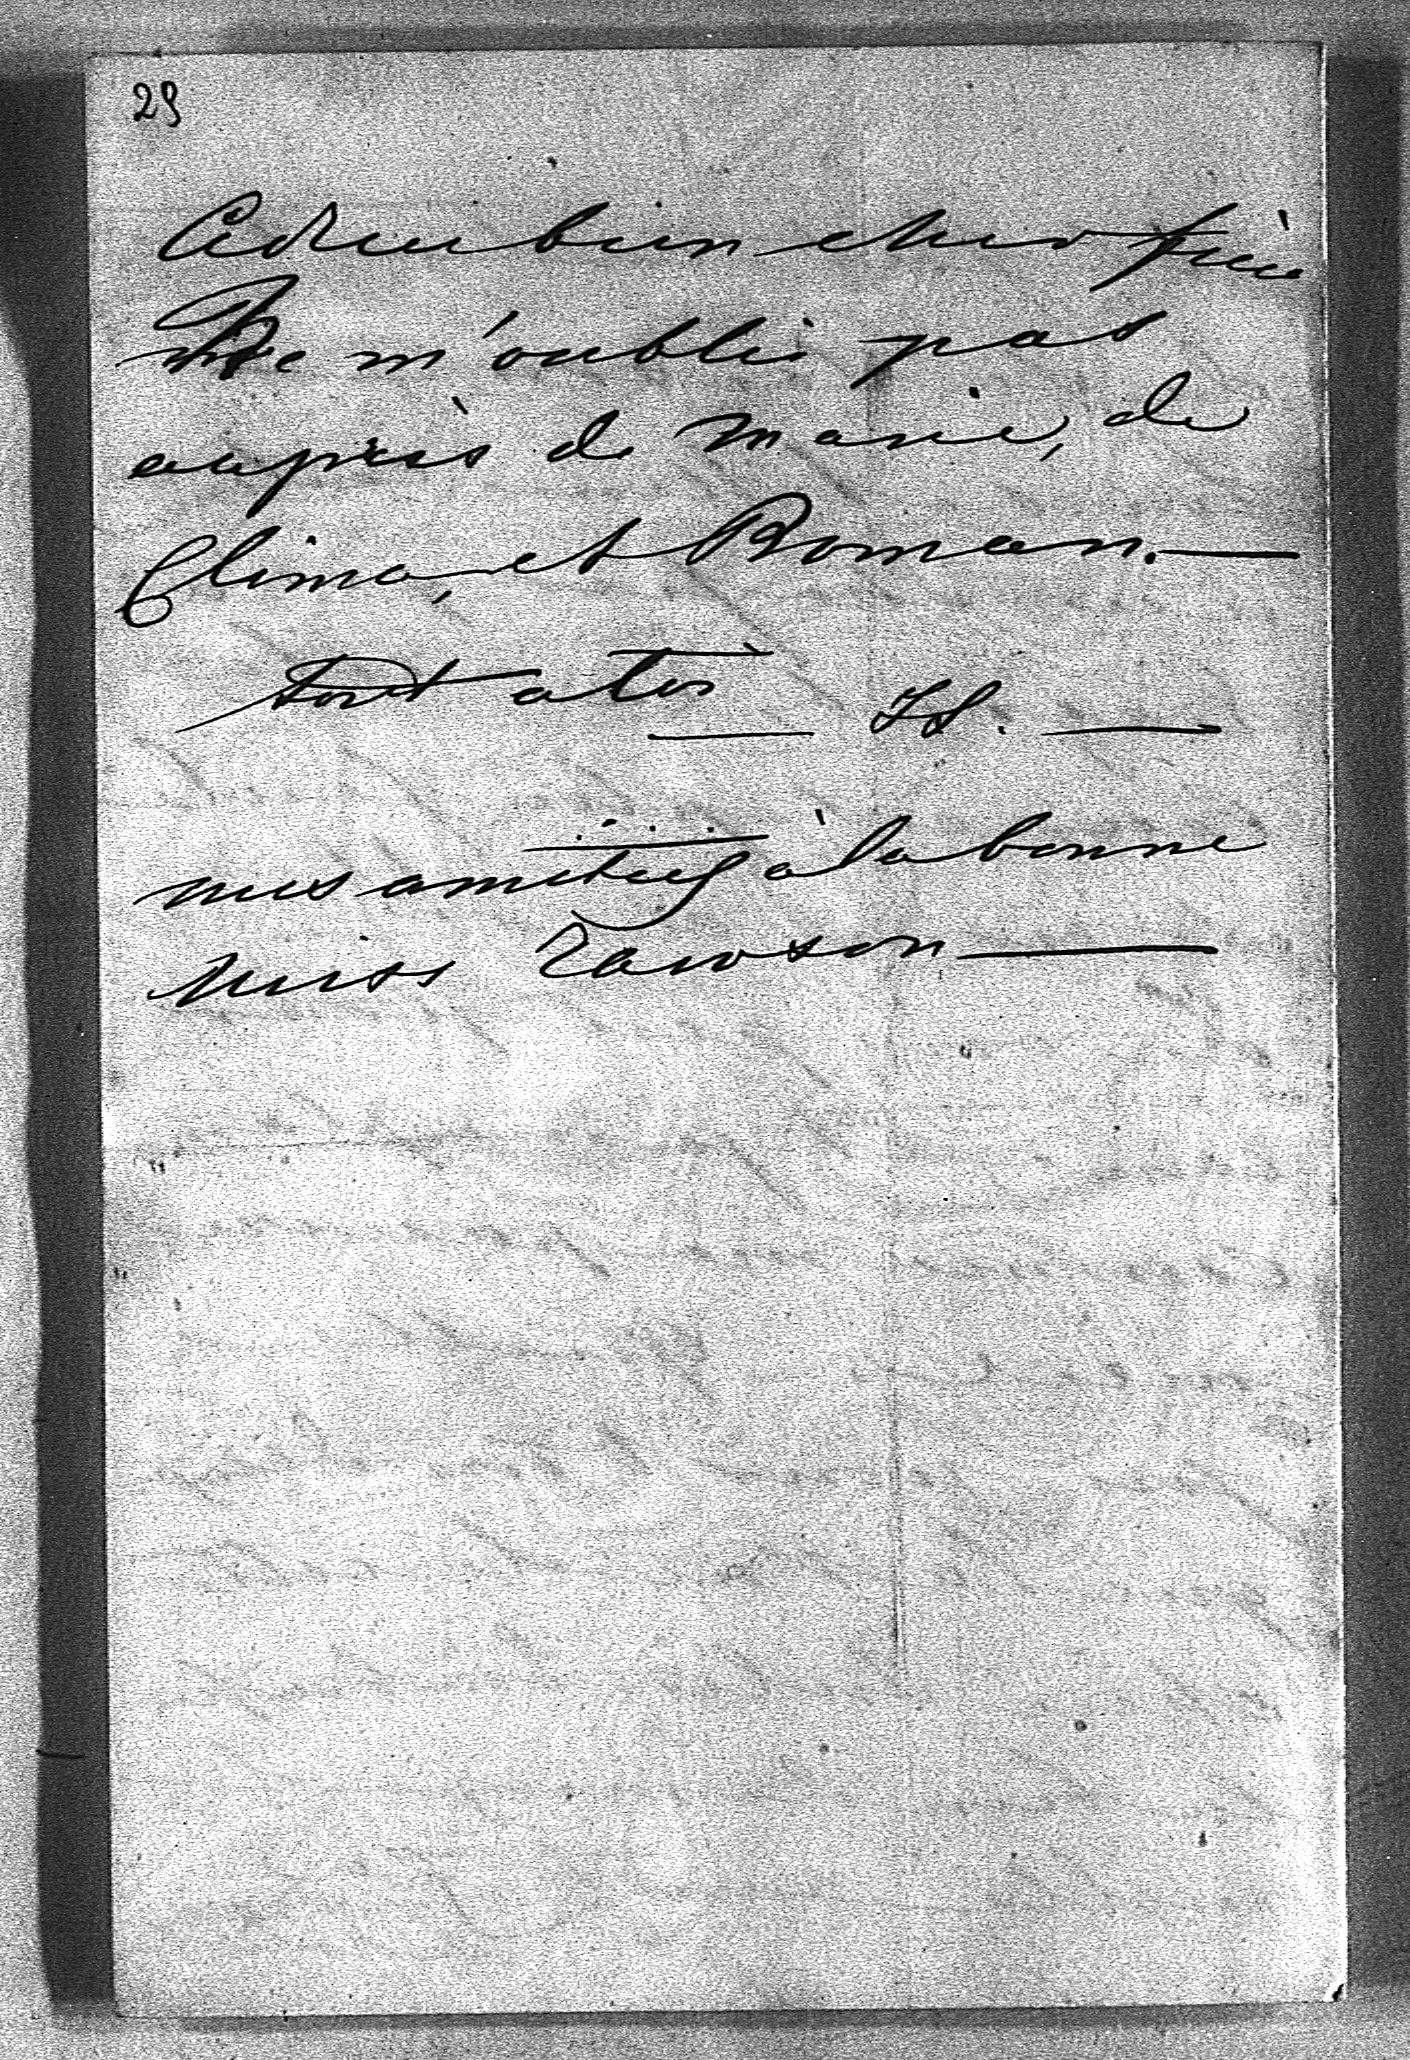 29
Adieu bien cher frère
Ne m'oublie pas
auprès de Marie, de
Clima, et Roman. —
tout à toi — IS. —
mes amitiés à la bonne
Miss Rawson —